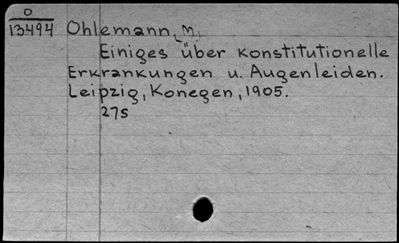 O
13494 Ohlemann, M.,
Einiges über konstitutionelle
Erkrankungen u. Augenleiden.
Leipzig, Konegen, 1905.
27s